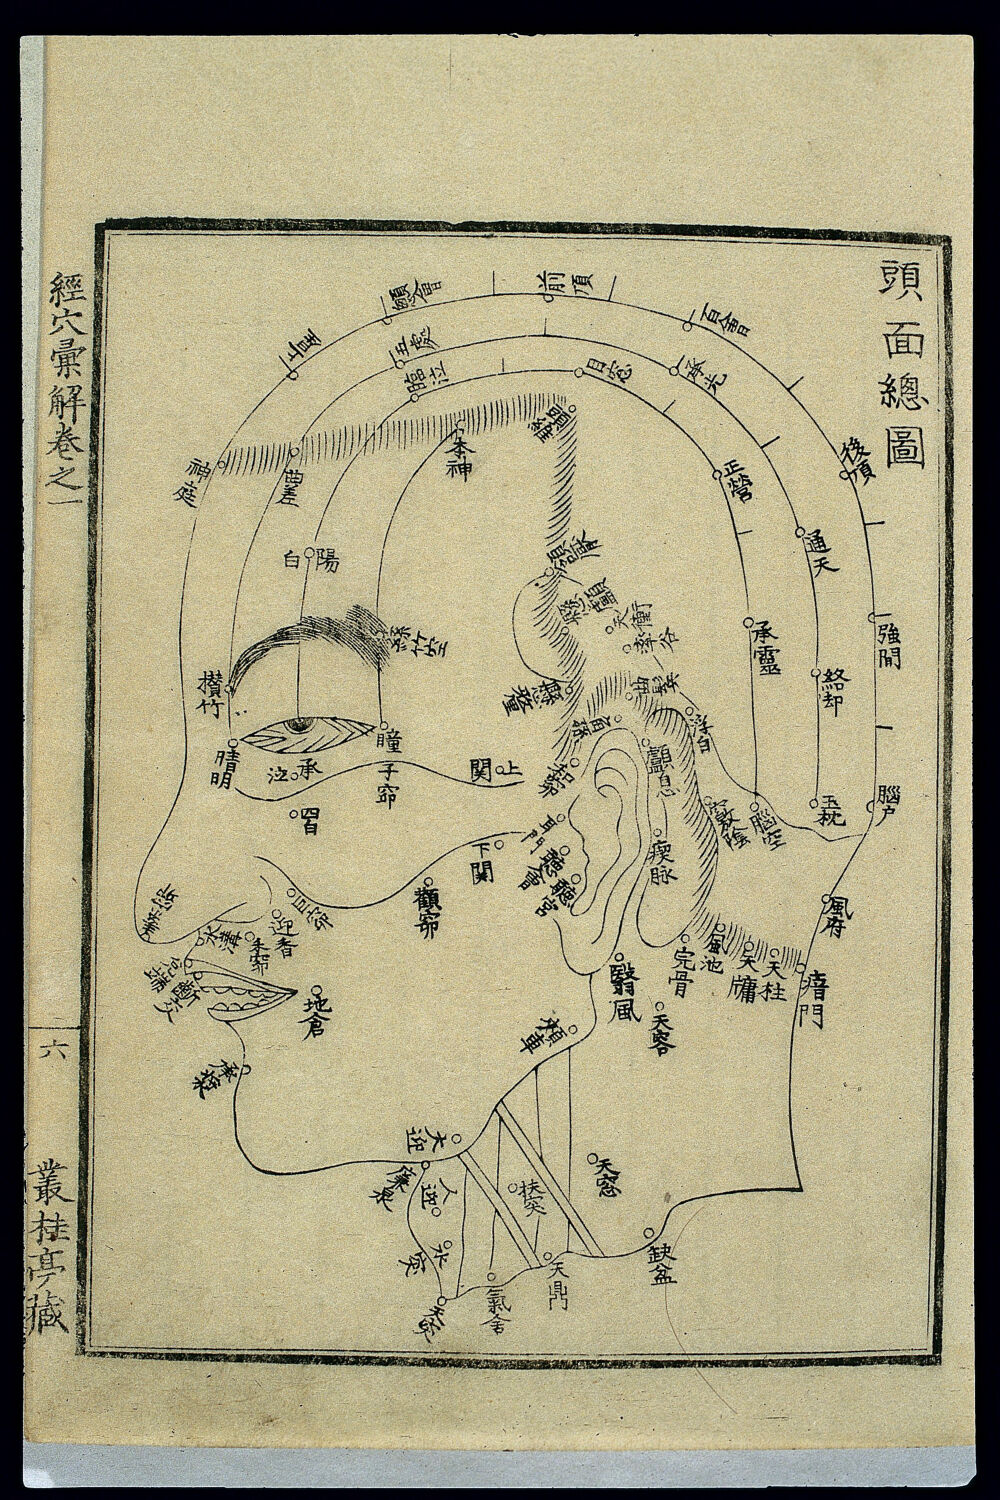 頭面總圖
經穴彙解卷之一
六
叢桂亭藏
前頂
顖會
上星
百會
五處
承光
臨泣
目窓
後頂
神庭
曲差
本神
頭維
正營
通天
白陽
頷厭
懸顱
天衝
率谷
承靈
強間
絲竹空
攅竹
懸釐
曲鬢
絡却
浮白
角孫
晴明
瞳子窌
承泣
上関
和窌
顱息
四白
耳門
竅陰
腦空
玉枕
腦户
下関
聽會
聽宮
瘈脉
顴窌
巨窌
迎香
禾窌
水溝
兌端
齗交
風府
風池
完骨
天牖
天柱
瘖門
地倉
翳風
天容
頰車
承漿
大迎
廉泉
人迎
水突
扶突
天窓
缺盆
天鼎
氣舍
天突